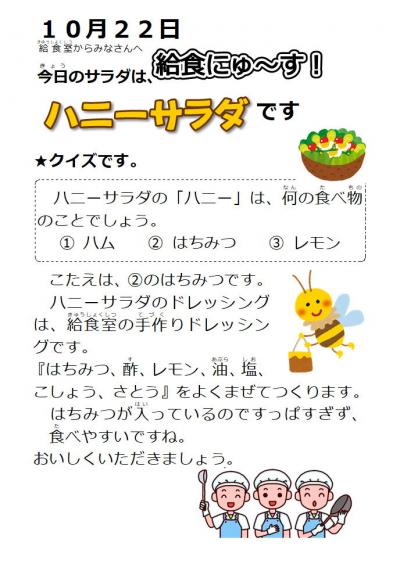 １０月２２日
給食室からみなさんへ
給食にゅ～す！
今日のサラダは、
ハニーサラダです
★クイズです。
ハニーサラダの「ハニー」は、何の食べ物
のことでしょう。
① ハム　② はちみつ　③ レモン
こたえは、②のはちみつです。
ハニーサラダのドレッシング
は、給食室の手作りドレッシン
グです。
『はちみつ、酢、レモン、油、塩、
こしょう、さとう』をよくまぜてつくります。
はちみつが入っているのですっぱすぎず、
食べやすいですね。
おいしくいただきましょう。